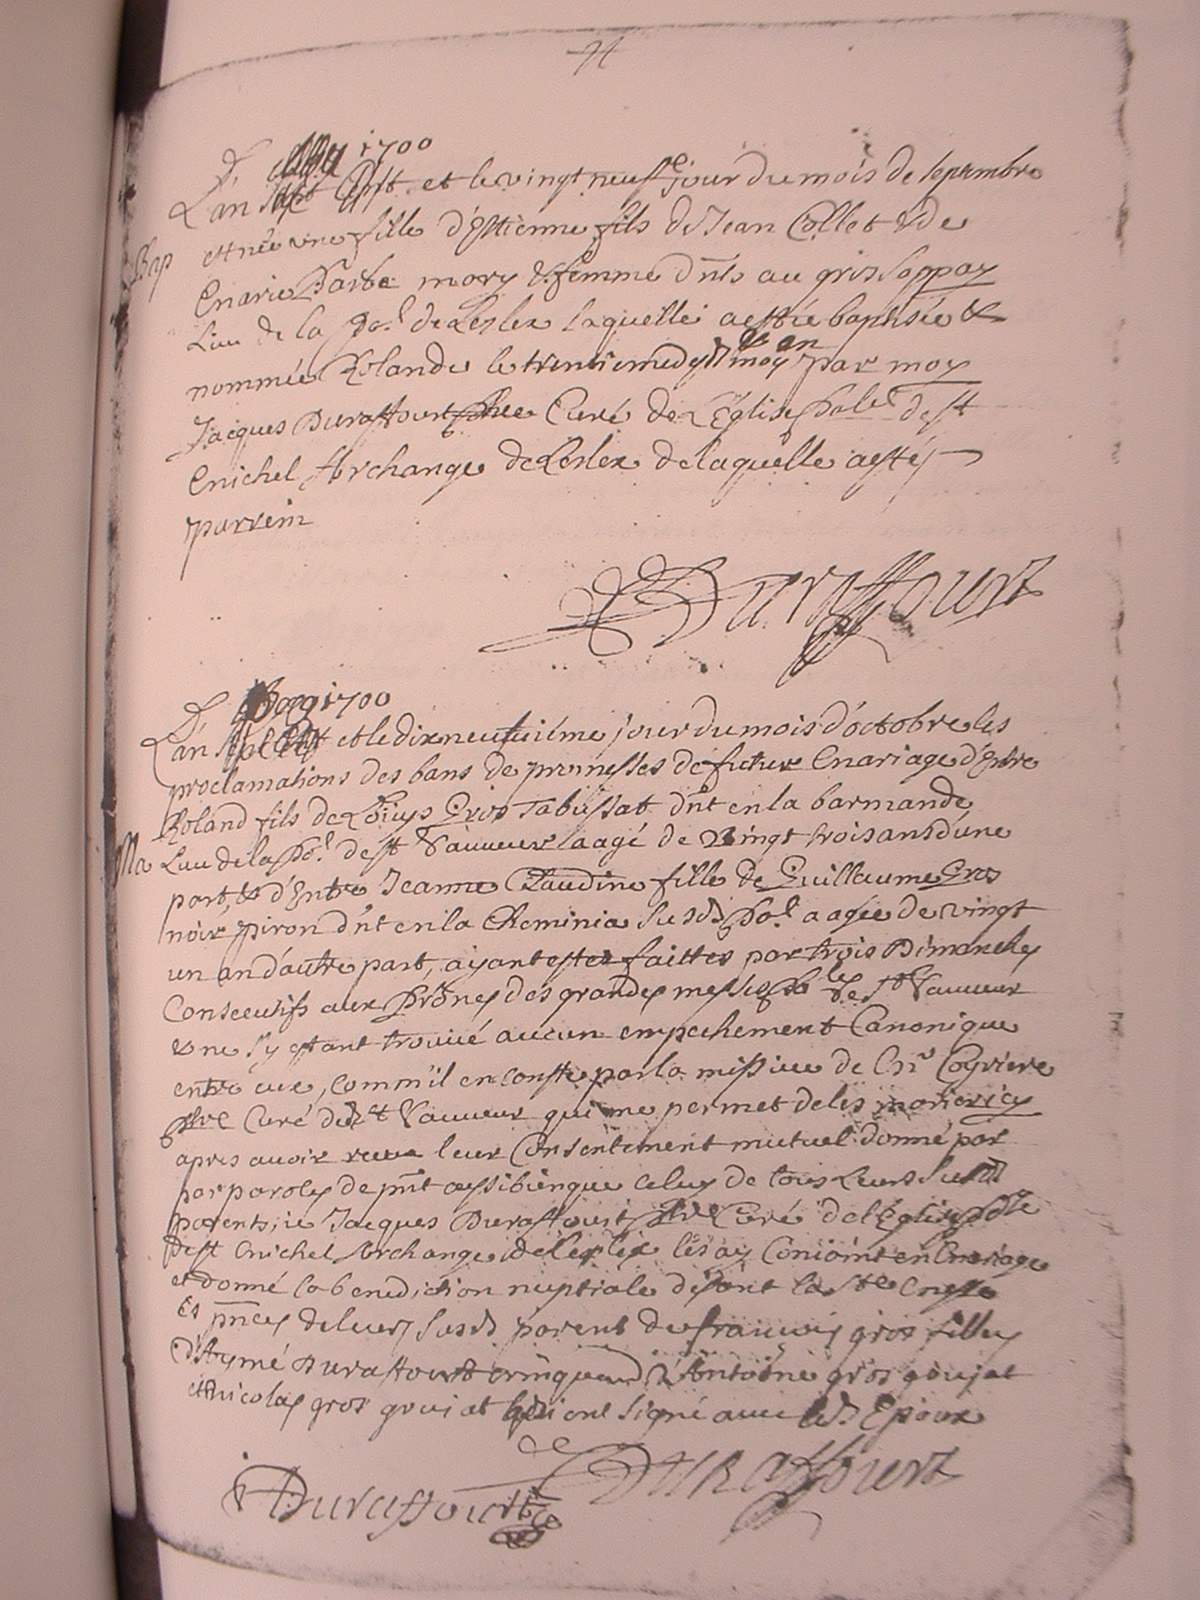 1700
L'an et le vingt neuf jour du mois de sepembre
Bap
est née une fille d'Estienne fils de Jean Collet & de
Marie Barbe mory sa femme dnts au gros soppay
Lieu de la po.l de Leslex laquelle a esté baptisée &
nommée Rolande le trentiemedud moy & an par moy
Jacques Duraffourt pbre Curé de L'Eglise paле de st
Michel Archange de Leslex de laquelle a estés
parrein
Duraffourt
1700
L'an et le dix neufuiéme jour du mois d'octobre les
proclamations des bans de promesses de futur Mariage d'Entre
Roland fils de Loüys Gros Tabussat dnt en la barmande
Ma
Lieu de la po.l de st Sauueur aagé de vingt trois ans d'une
part, & d'Entre Jeanne Claudine fille de Guillaume Gros
noir piron dnt en la Cheminia susd po.l aagée de vingt
un an d'autre part, ayant estes faittes par trois Dimanches
Consecutifs aux prônes des grandes messes de st Sauueur
& ne s'y estant trouué aucun empechement Canonique
entre eux, comm'il en conste par la missiue de Mr Coyriere
pbre Curé dud st Sauueur qui me permet de les marier icy
apres auoir receu leur Consentement mutuel donné par
par paroles de pnt aussi bien que celuy de tous Leurs susd
parents, ie Jacques Duraffourt pbre Curé de l'Eglise pale
de st Michel Archange de Leslex les ay conioint en Mariage
et donné la benediction nuptiale disant la ste Messe
Es pnces de leurs susds parents de françois gros filley
d'Aymé Duraffourt d'Antoine gros goujat
et nicolas gros goujat qui ont signé auec lesd Epoux
Duraffourt
Duraffourt